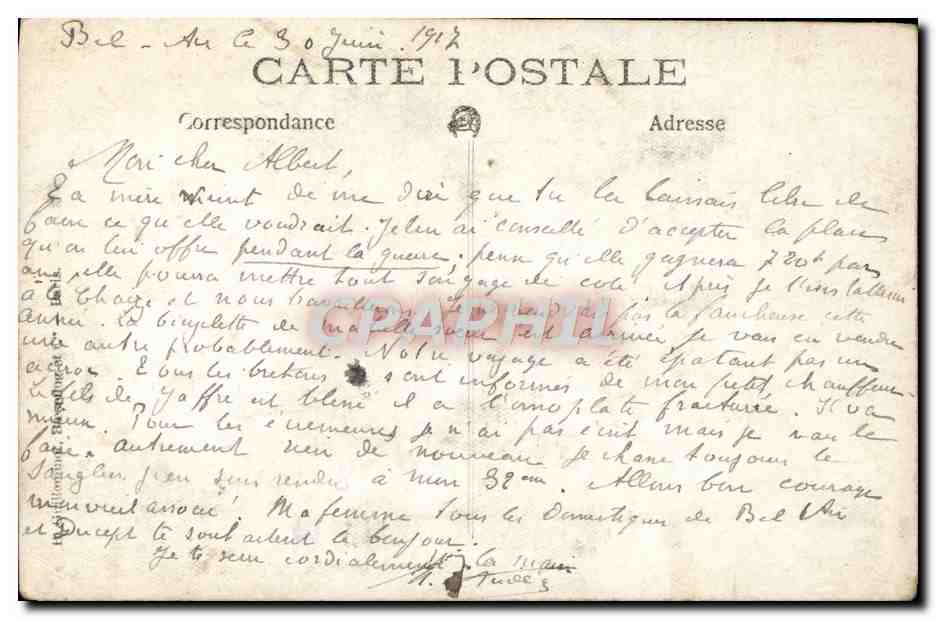 Bel-Air le 30 Juin 1917
CARTE POSTALE
Correspondance
Adresse
Mon cher Albert,
Ta mère vient de me dire que tu la laissais libre de
faire ce qu'elle voudrait. Je lui ai conseillé d'accepter la place
qu'on lui offre pendant la guerre. pense qu'elle gagnera 720f par
an, elle pourra mettre tout son gage de coté. Après je l'installerai
à la et nous travaillerons. Je ne vendrai pas la faucheuse cette
année. La bicyclette de ma belle soeur est arrivée je vais en vendre
une autre probablement. Notre voyage a été épatant pas un
accroc. Tous les bretons sont informés de mon petit chauffeur.
Le fils de Jaffre est blessé il a l'omoplate fracturée. Il va
mieux. Pour les je n'ai pas écrit mais je vais le
faire. autrement rien de nouveau je chasse toujours le
sanglier j'en suis rendu à mon 32em. Allons bon courage
mon vieil associé. Ma femme tous les domestiques de Bel Air
et te souhaitent le bonjour.
Je te serre cordialement la main
CPAPHIL